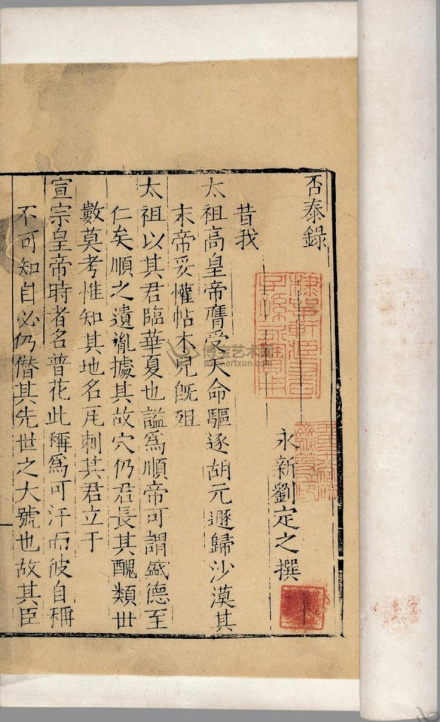 否泰錄
永新劉定之撰
昔我
太祖高皇帝膺受天命驅逐胡元遯歸沙漠其
末帝妥懽帖木兒既殂
太祖以其君臨華夏也謚為順帝可謂盛德至
仁矣順之遺胤據其故穴仍君長其醜類世
數莫考惟知其地名瓦剌其君立于
宣宗皇帝時者名普花此稱為可汗而彼自稱
不可知自必仍僭其先世之大號也故其臣